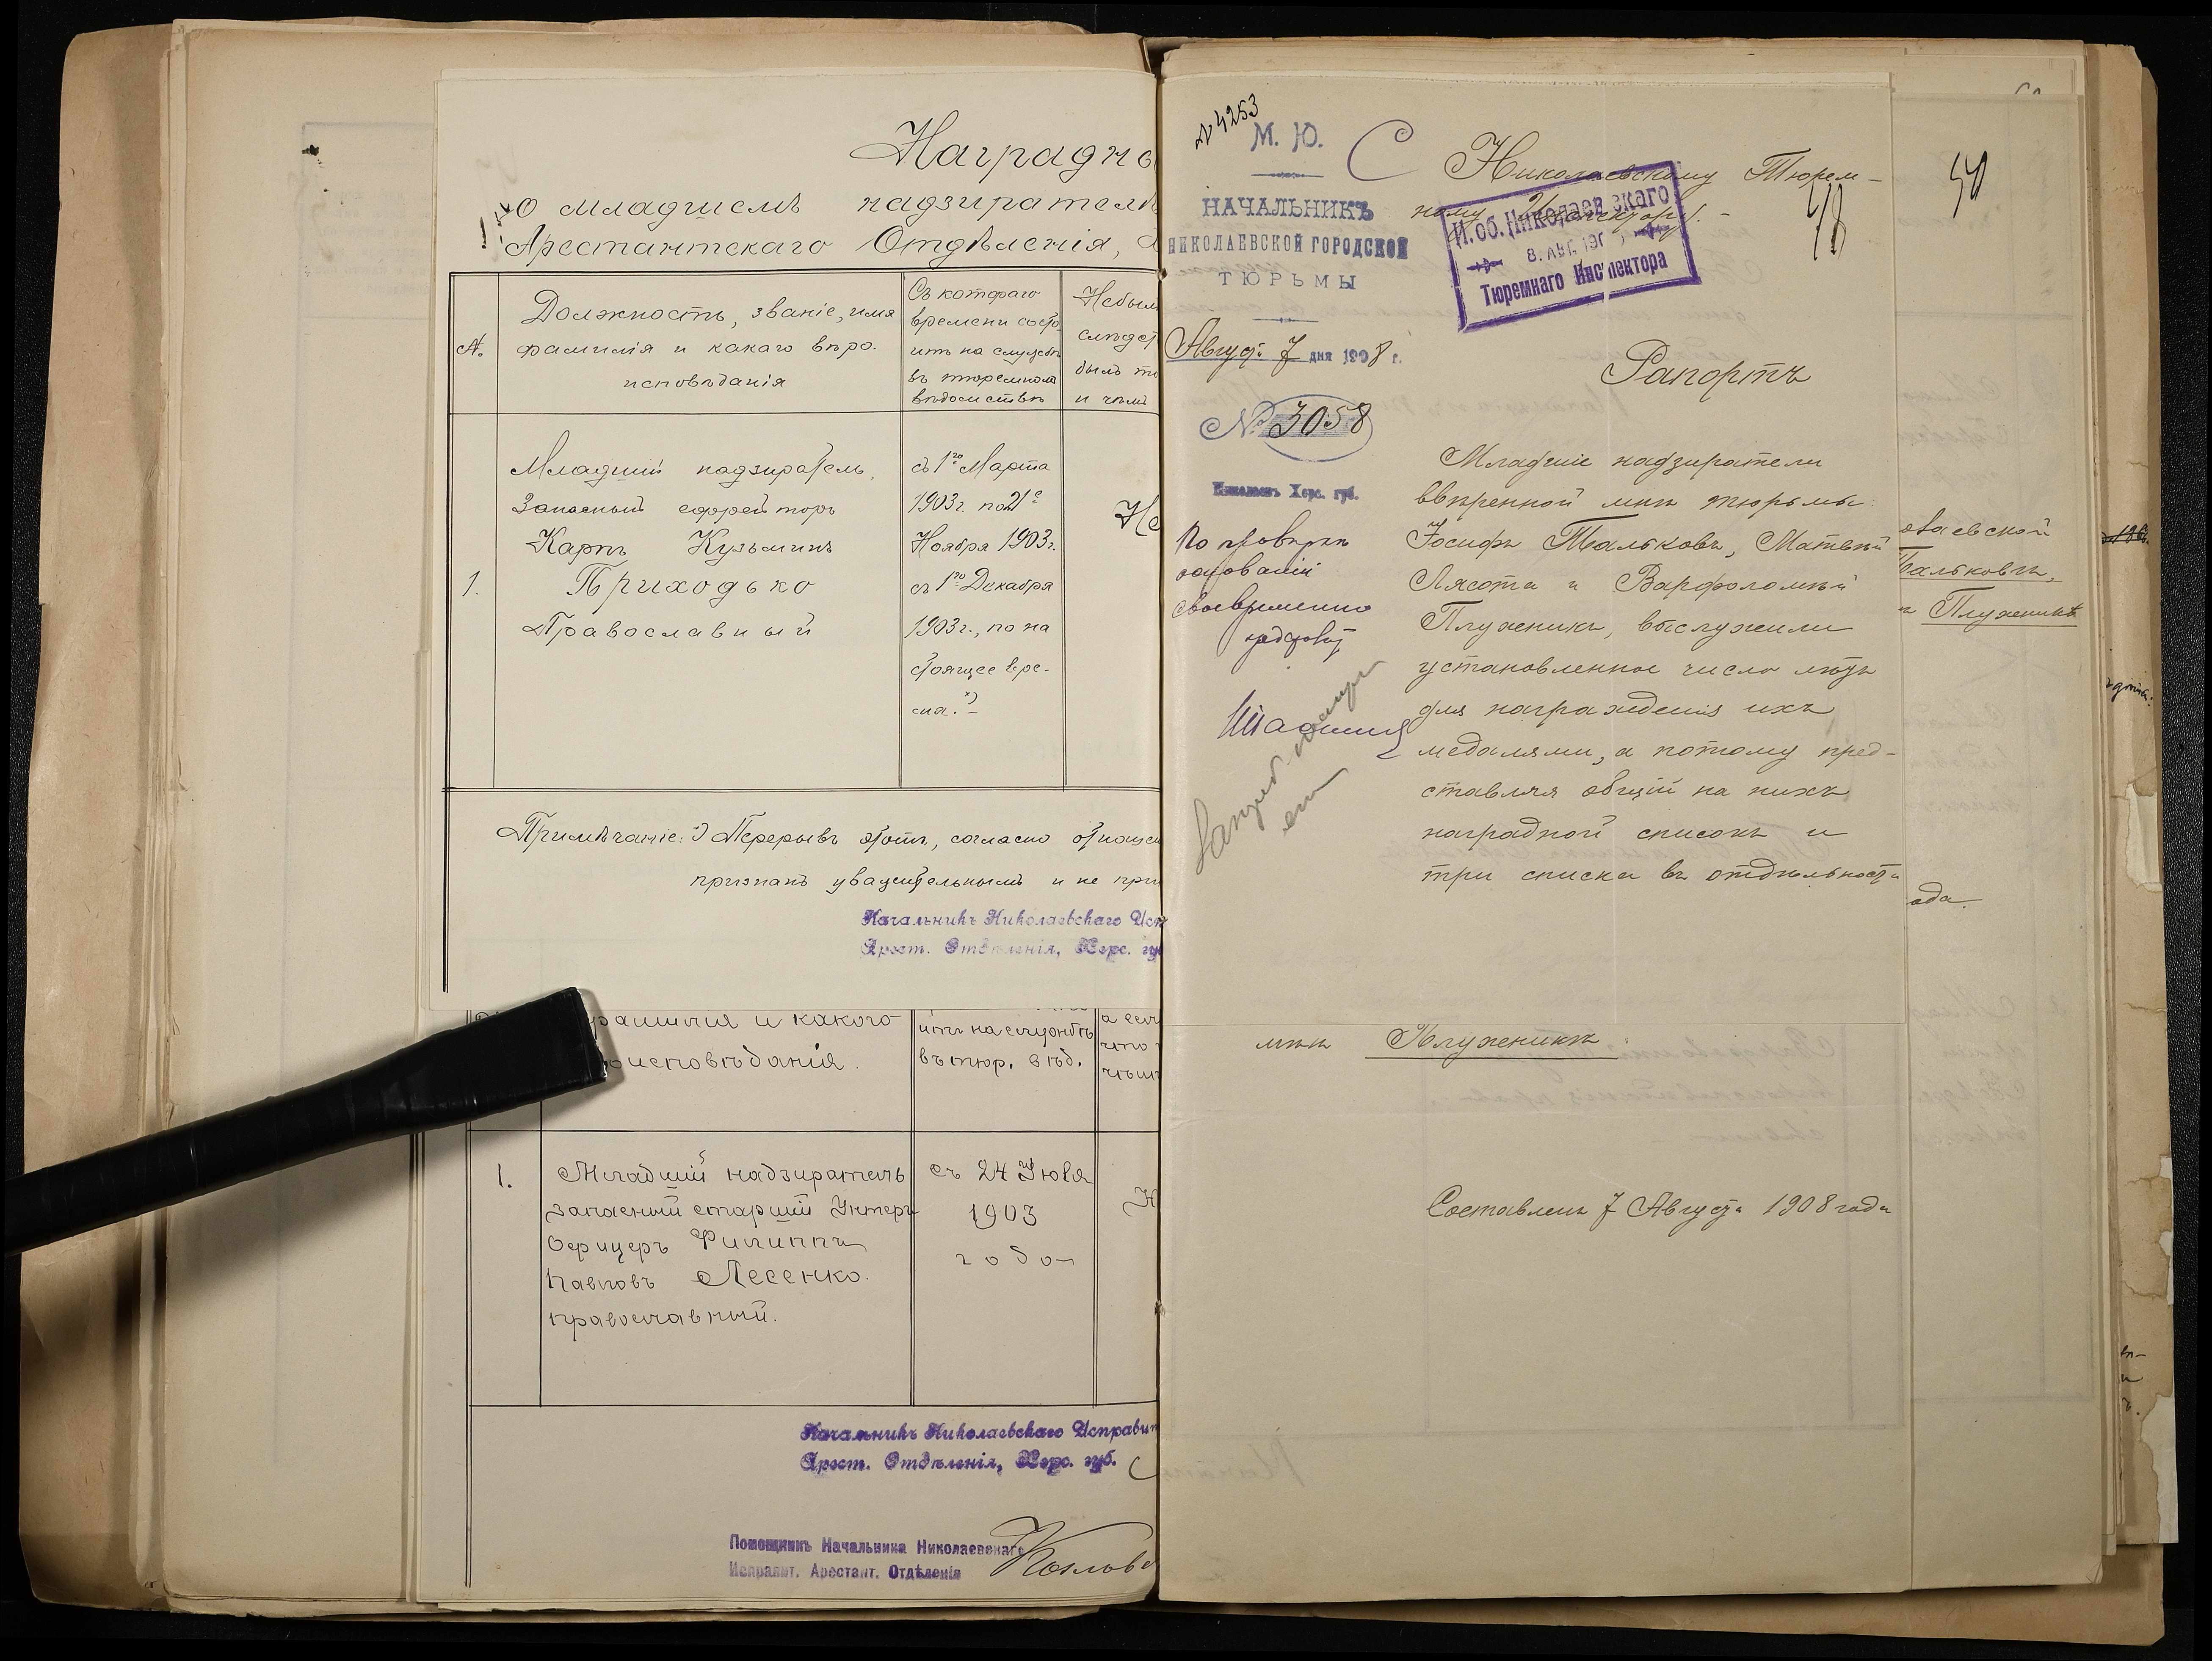 Наградно
О младшемъ надзирател
Арестантскаго Отдѣленія,
№.
Должность, званіе, имя
фамилія и какаго вѣро-
исповѣданія
Съ котораго
времени состо
итъ на службѣ
въ тюремномъ
вѣдомствѣ
Небыл
слѣдст
былъ то
и чѣмъ
1.
Младшій надзиратель,
Запасный ефрейторъ
Карпъ Кузьминъ
Приходько
Православный
съ 1го Марта
1903г. по 21е
Ноября 1903г.
съ 1го Декабря
1903г., по на
стоящее вре-
мя. х)
Не
Примѣчаніе: х) Перерывъ этотъ, согласно отноше
признанъ уважительнымъ и не при
Начальникъ Николаевскаго Исп
Арест. Отдѣленія, Херс. гу
фамилія и какого
оисповѣданія.
итъ на службѣ
въ тюр. вѣд.
а если
что
чѣмъ
1.
Младшій надзиратель
запасный старшій Унтеръ
Офицеръ Филиппъ
Павловъ Лесенко.
православный.
съ 24 Июля
1903
года
Н
Начальникъ Николаевскаго Исправит
Арест. Отдѣленія, Херс. губ.
Помощникъ Начальника Николаевскаго
Исправит. Арестант. Отдѣленія
Козлов
№ 4253
М. Ю.
НАЧАЛЬНИКЪ
НИКОЛАЕВСКОЙ ГОРОДСКОЙ
ТЮРЬМЫ
Август. 7 дня 1908 г.
№ 3058
Николаевъ Херс. губ.
По провѣркѣ
основаній
своевременно
С
Николаевскому Тюрем-
ному Инспектору.
И. об. Николаевскаго
8. АВГ. 190
Тюремнаго Инспектора
58
Рапортъ
Младшіе надзиратели
ввѣренной мнѣ тюрьмы
Іосифъ Тальковъ, Матвѣй
Лясота и Варфоломѣй
Плуженикъ, выслужили
установленное число лѣтъ
для награжденія ихъ
медалями, а потому пред-
ставляя общій на нихъ
наградной списокъ и
три списка въ отдѣльности
мѣй Плуженикъ
Составленъ 7 Августа 1908 года
олаевской
Тальковъ,
и Плуженикъ
ода.